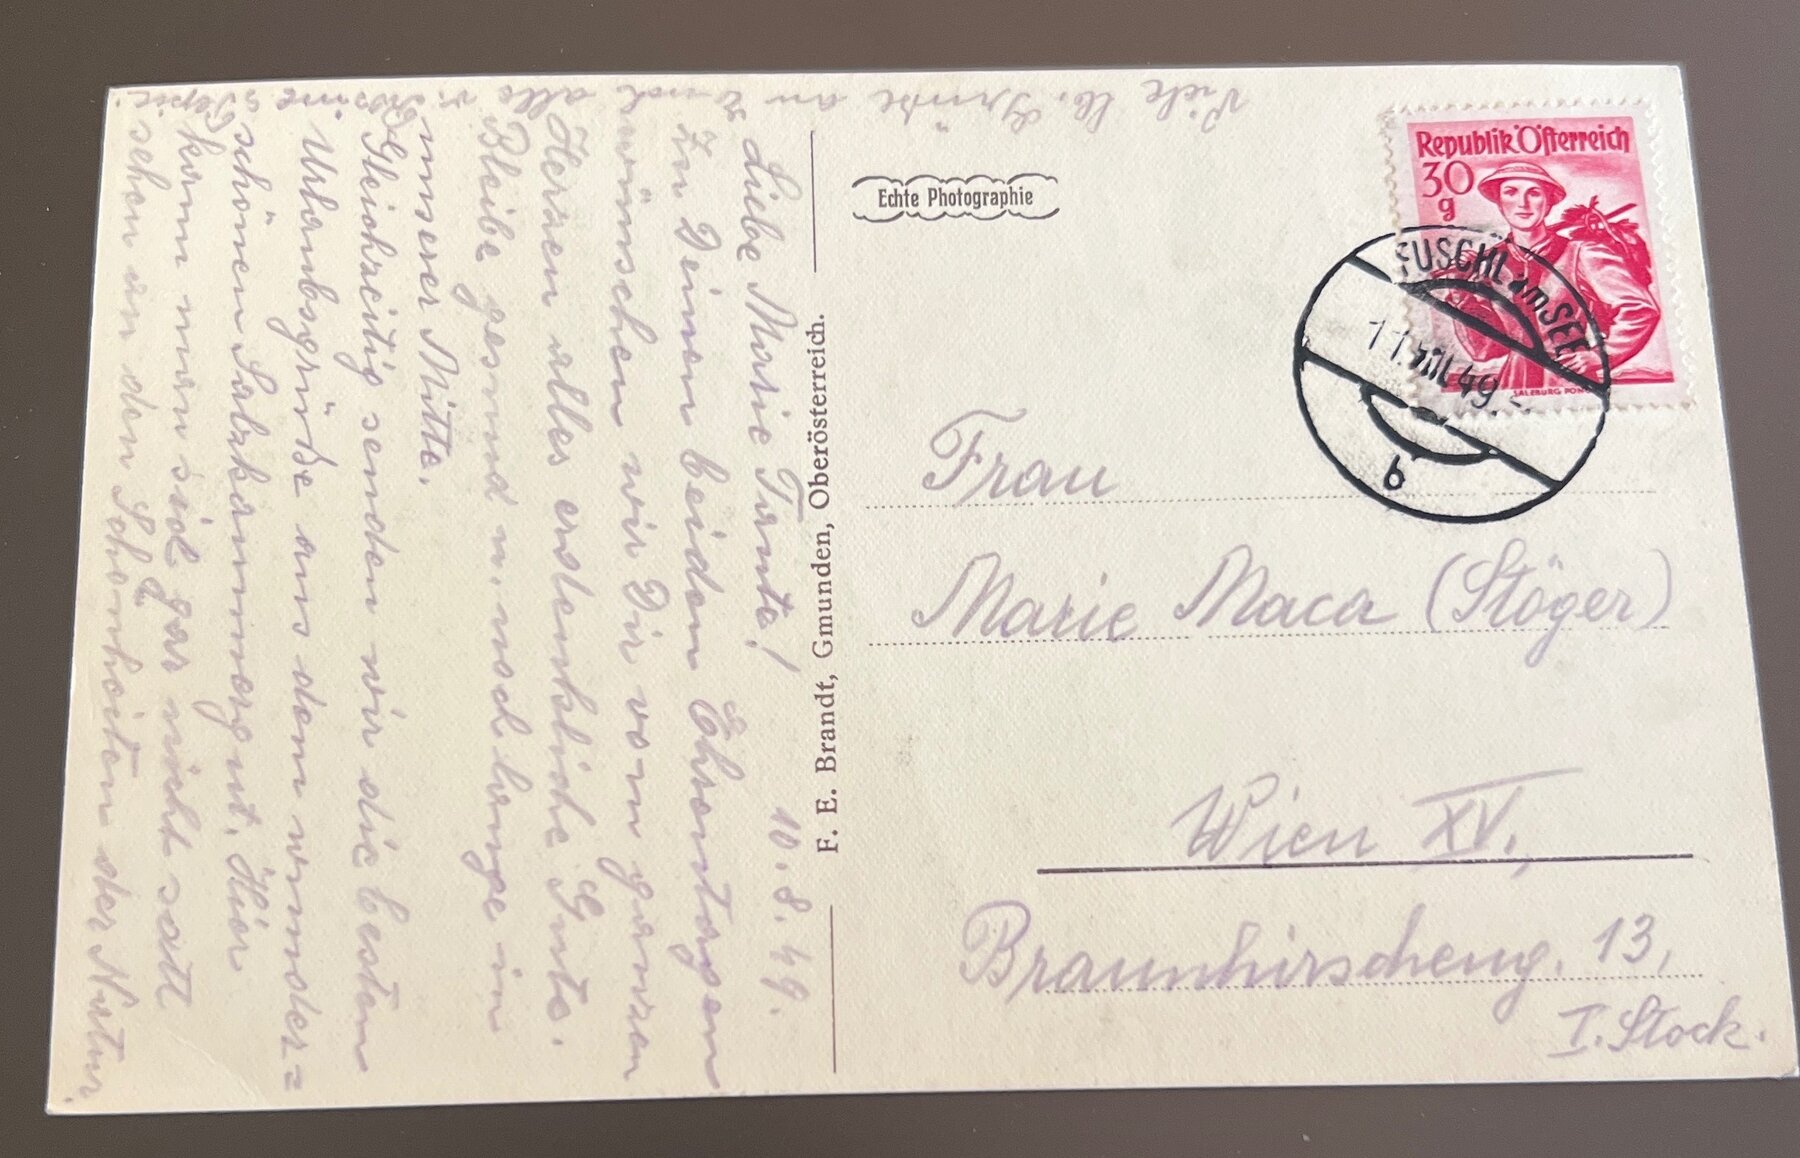 Liebe Marie Tante! 10.8.49.
Zu Deinen beiden Ehrentagen
wünschen wir Dir vom ganzen
Herzen alles erdenkliche Gute.
Bleibe gesund u. noch lange in
unserer Mitte.
Gleichzeitig senden wir die besten
Urlaubsgrüße aus dem wunder=
schönen Salzkammergut. Hier
kann man sich gar nicht satt
sehen an den Schönheiten der Natur.
Viele lb. Grüße an alle
Echte Photographie
F. E. Brandt, Gmunden, Oberösterreich.
Republik Österreich
30
g
SALZBURG PON
FUSCHL am SEE
11.VIII.49.
b
Frau
Marie Maca (Stöger)
Wien XV.,
Braunhirscheng. 13,
I. Stock.